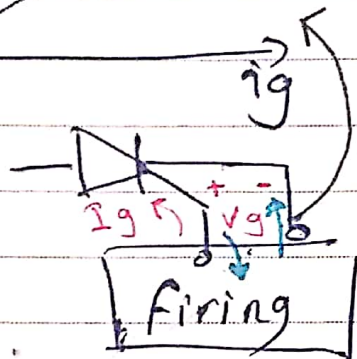 ig
+ -
Ig Vg
firing